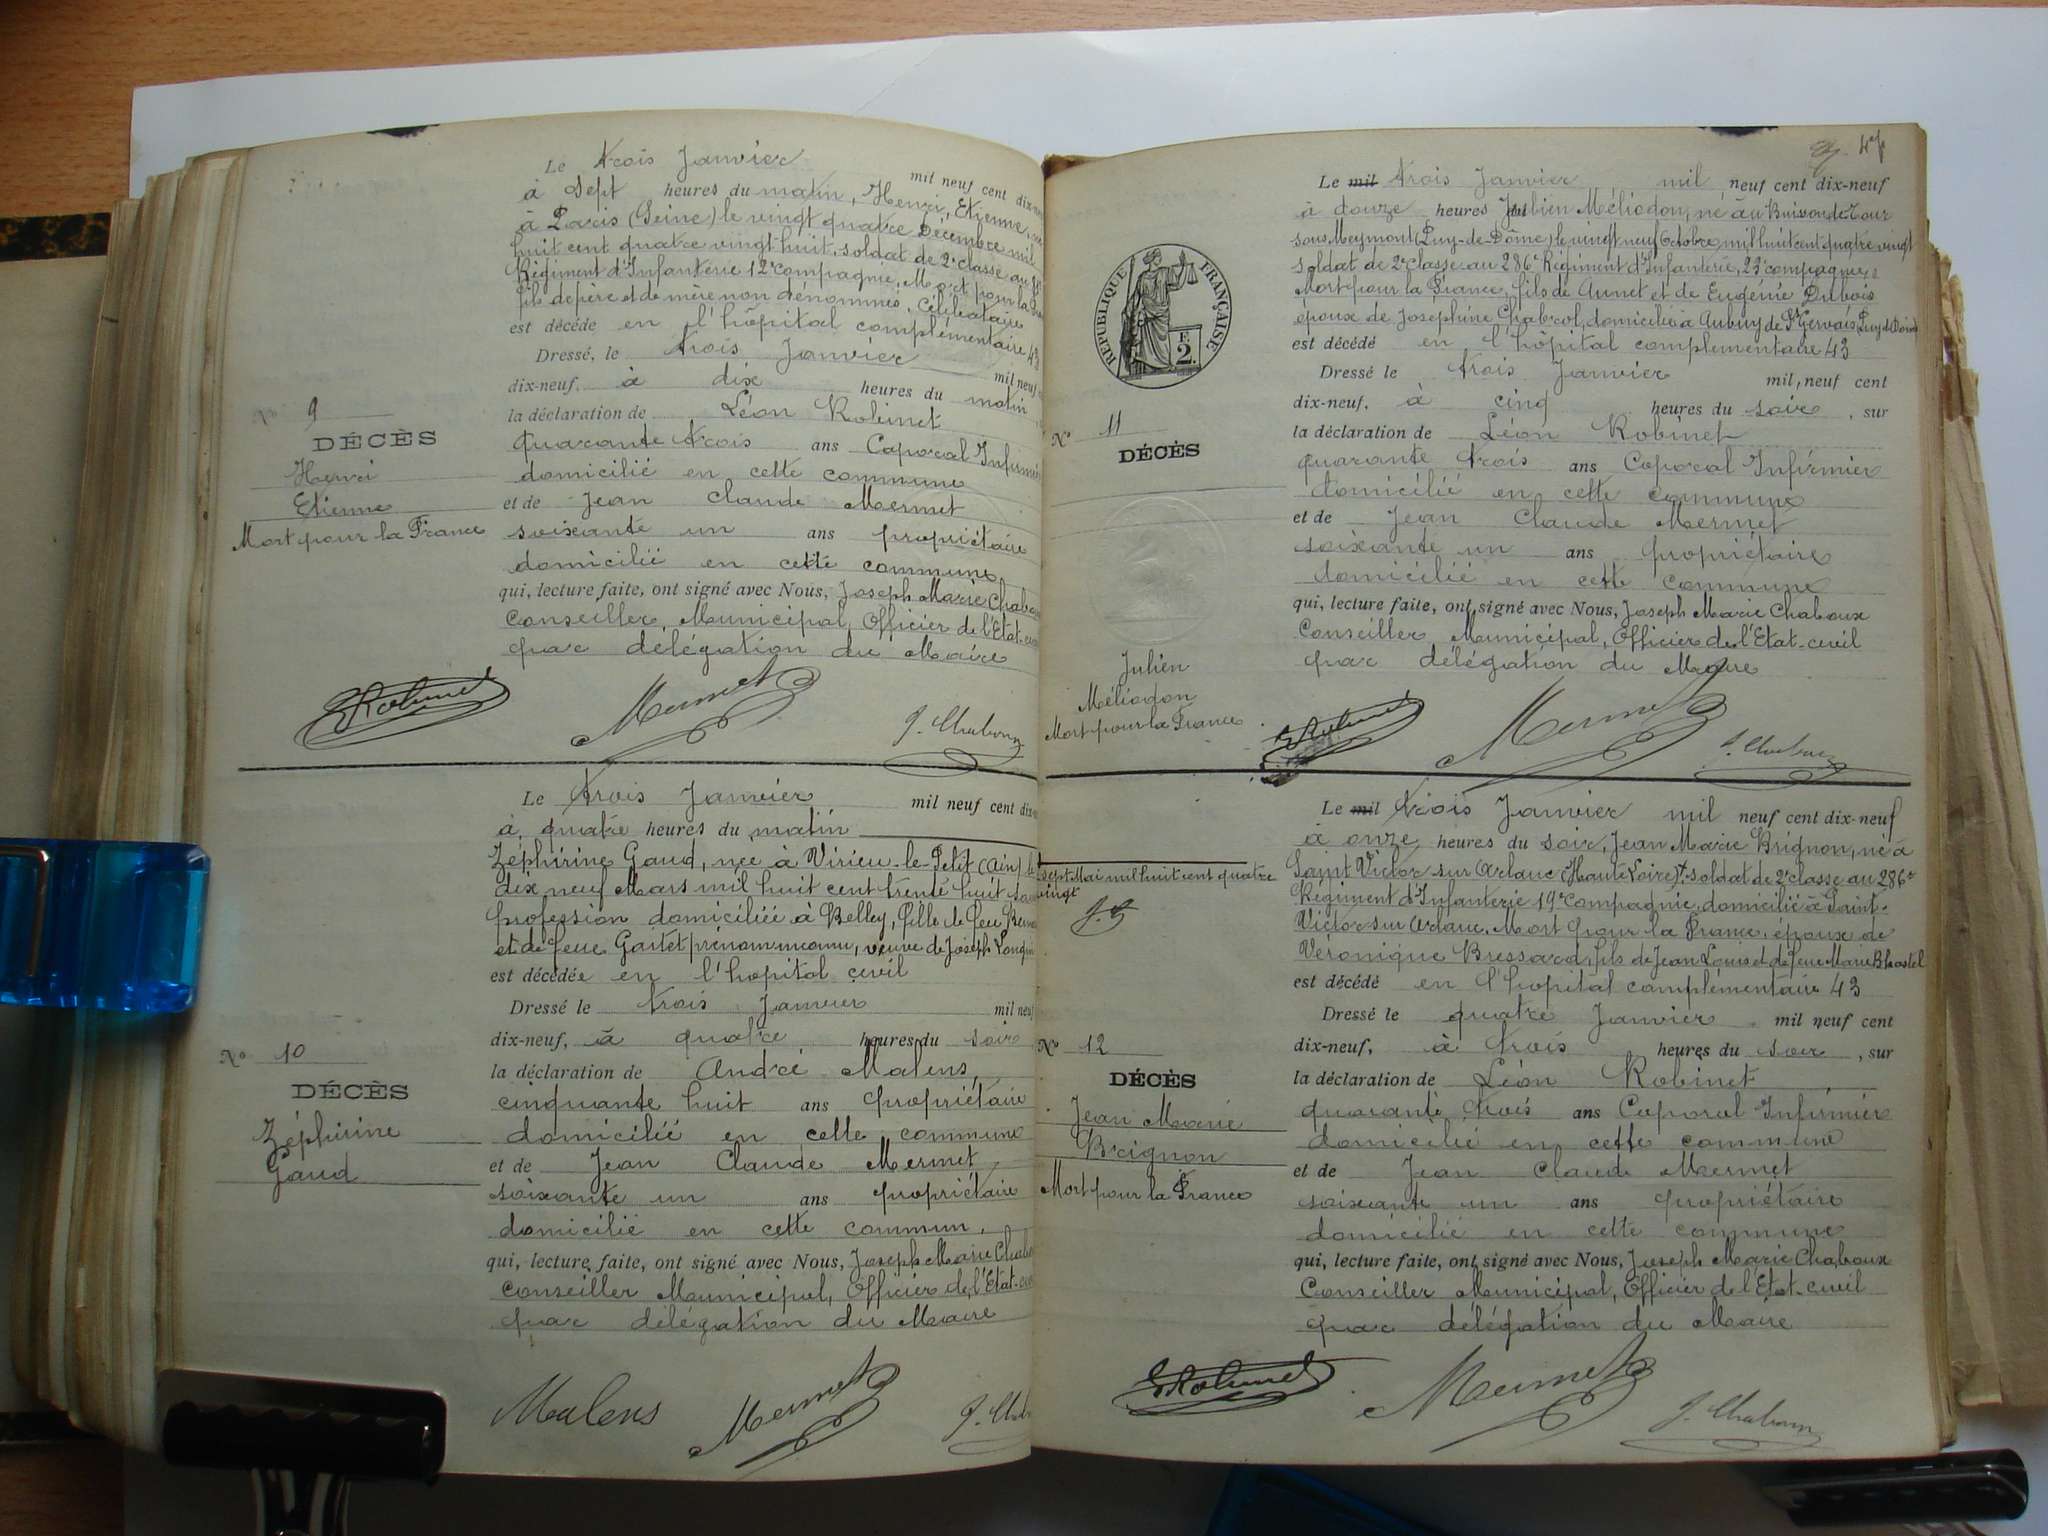 Le trois Janvier mil neuf cent dix-
à Sept heures du matin, Henri, Etienne, né
à Paris (Seine) le vingt quatre Décembre mil
huit cent quatre vingt-huit, soldat de 2e classe au
Régiment d'Infanterie 12e compagnie, Mort pour la
fils de père et de mère non dénommés, Célibataire
est décédé en l'hôpital complémentaire 43
Dressé, le trois Janvier mil neuf
dix-neuf, à dix heures du matin
la déclaration de Léon Robinet
quarante trois ans Caporal Infirmier
domicilié en cette commune
et de Jean Claude Mermet
soixante un ans propriétaire
domicilié en cette commune
qui, lecture faite, ont signé avec Nous, Joseph Marie
Conseiller Municipal, Officier de l'Etat-
par délégation du Maire
No 9
DÉCÈS
Henri
Etienne
Mort pour la France
Robinet Mermet J. Chaboux
Le trois Janvier mil neuf cent dix-
à quatre heures du matin
Zéphirine Gaud, née à Virieu-le-Petit (Ain) le
dix neuf Mars mil huit cent trente huit
profession domiciliée à Belley, fille de feu
et de feue Gaitet prénom inconnu, veuve de Joseph
est décédée en l'hopital civil
Dressé le trois Janvier mil neuf
dix-neuf, à quatre heures du soir
la déclaration de André Malens,
cinquante huit ans propriétaire
domicilié en cette commune
et de Jean Claude Mermet
soixante un ans propriétaire
domicilié en cette commun.
qui, lecture faite, ont signé avec Nous, Joseph Marie
Conseiller Municipal, Officier de l'Etat-
par délégation du Maire
No 10
DÉCÈS
Zéphirine
Gaud
Malens Mermet J.
47
REPUBLIQUE FRANÇAISE
E
2.
Le mil trois Janvier mil neuf cent dix-neuf
à douze heures Julien Méliodon, né au Buisson de Tour
sous Meymont (Puy-de-Dôme) le vingt neuf Octobre mil huit cent quatre vingt
soldat de 2e classe au 286e Régiment d'Infanterie, 23e compagnie,
Mort pour la France, fils de Annet et de Eugénie Dubois
époux de Josephine Chabrol, domicilié à St Gervais Puy de Dôme
est décédé en l'hôpital complémentaire 43
Dressé le trois Janvier mil neuf cent
dix-neuf, à cinq heures du soir, sur
la déclaration de Léon Robinet
quarante trois ans Caporal Infirmier
domicilié en cette commune
et de Jean Claude Mermet
soixante un ans propriétaire
domicilié en cette commune
qui, lecture faite, ont signé avec Nous, Joseph Marie Chaboux
Conseiller Municipal, Officier de l'Etat-civil
par délégation du Maire
No 11
DÉCÈS
Julien
Méliodon
Mort pour la France
Robinet Mermet J. Chaboux
Le mil trois Janvier mil neuf cent dix-neuf
à onze heures du soir, Jean Marie Brignon, né à
Saint Victor sur Arlanc (Haute Loire) + soldat de 2e classe au 286e
Régiment d'Infanterie 19e compagnie, domicilié à Saint-
Victor sur Arlanc, Mort pour la France, époux de
Véronique Bressard, fils de Jean Louis et de feue Marie
est décédé en l'hopital complémentaire 43
Dressé le quatre Janvier mil neuf cent
dix-neuf, à trois heures du soir, sur
la déclaration de Léon Robinet
quarante trois ans Caporal Infirmier
domicilié en cette commune
et de Jean Claude Mermet
soixante un ans propriétaire
domicilié en cette commune
qui, lecture faite, ont signé avec Nous, Joseph Marie Chaboux
Conseiller Municipal, Officier de l'Etat-civil
par délégation du Maire
sept Mai mil huit cent quatre
vingt
No 12
DÉCÈS
Jean Marie
Brignon
Mort pour la France
Robinet Mermet J. Chaboux